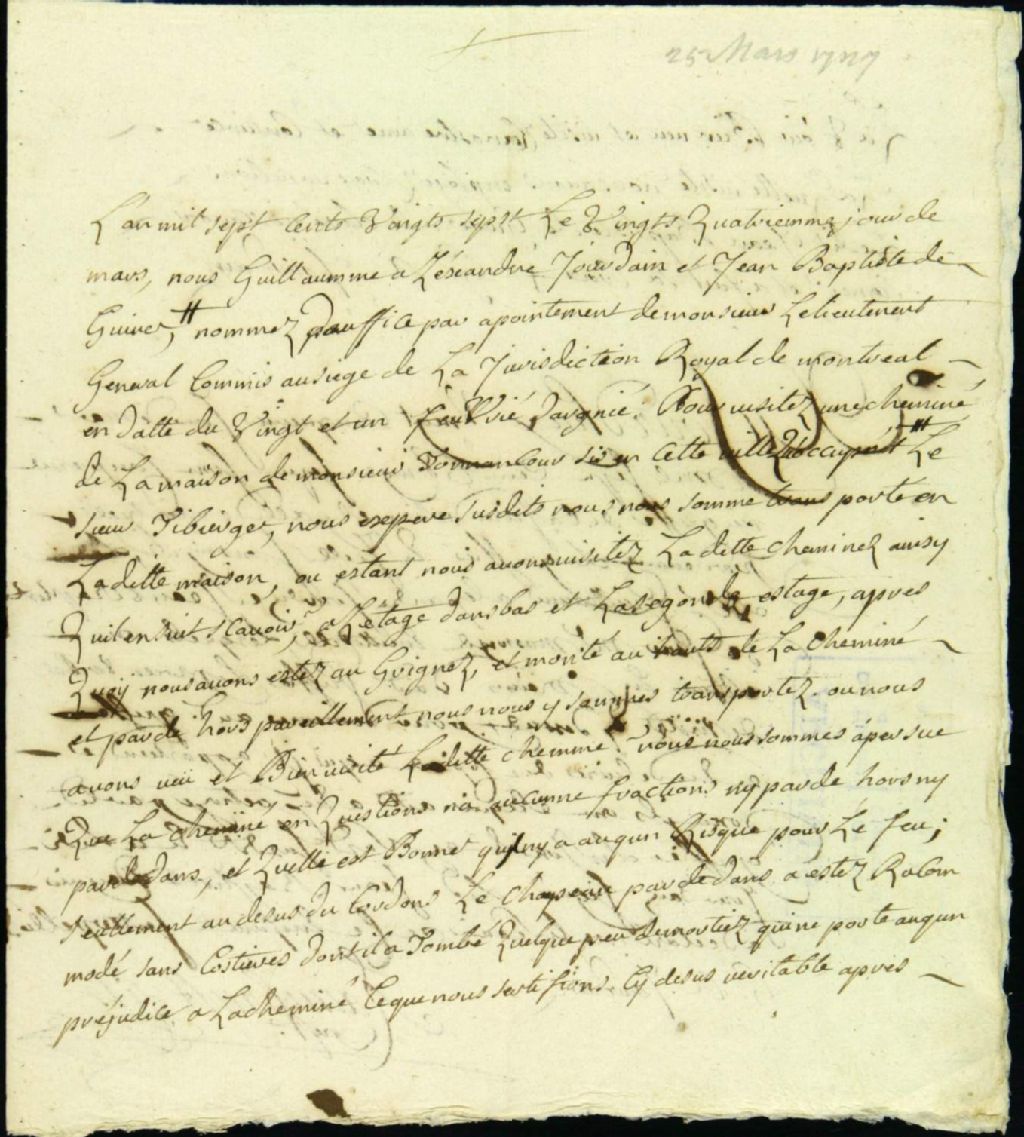 25 Mars 1727
L'an mil sept cents Vaigts sept Le Vingts Quatriemme jour de
mars, nous Guillaumme a Léxeandre Jourdain et Jean Baptiste de
Guire, nommez d'auffice par apointement de monsieur Lelieutenent
General Commis au siege de La Jurisdiction Royal de montreal
en datte du Vingt et un feuvrié daignié. Pour visitez une cheminé
de La maison de monsieur Tonnancour sis en cette ville occupée Le
sieur Tibierge, nous expere susdits nous nous somme trans porte en
Laditte maison, ou estant nous avons visitez La ditte cheminez ainsy
Quil en suit scavoir, a Létage dans bas et La segonde estage, apres
Quoy nous avons estez au Grignez, et monté au hauts de La cheminé
et par de hors pareillement nous nous y sommes transportez ou nous
avons veu et Bien visité Laditte cheminé nous nous sommes apersue
Que La cheminé en Questions na aucunne fractions ny par de hors ny
par de dans, et Quelle est Bonne quil ny a augun Risque pour Lé feu;
seullement au desus du Cordons Le chapeau par de dans a estez Racom
modé sans Costieres dont il a Tombé Quelque peu de mortiez qui ne porte augun
préjudice a La cheminé Ce que nous sertifions Cy desus veritable apres